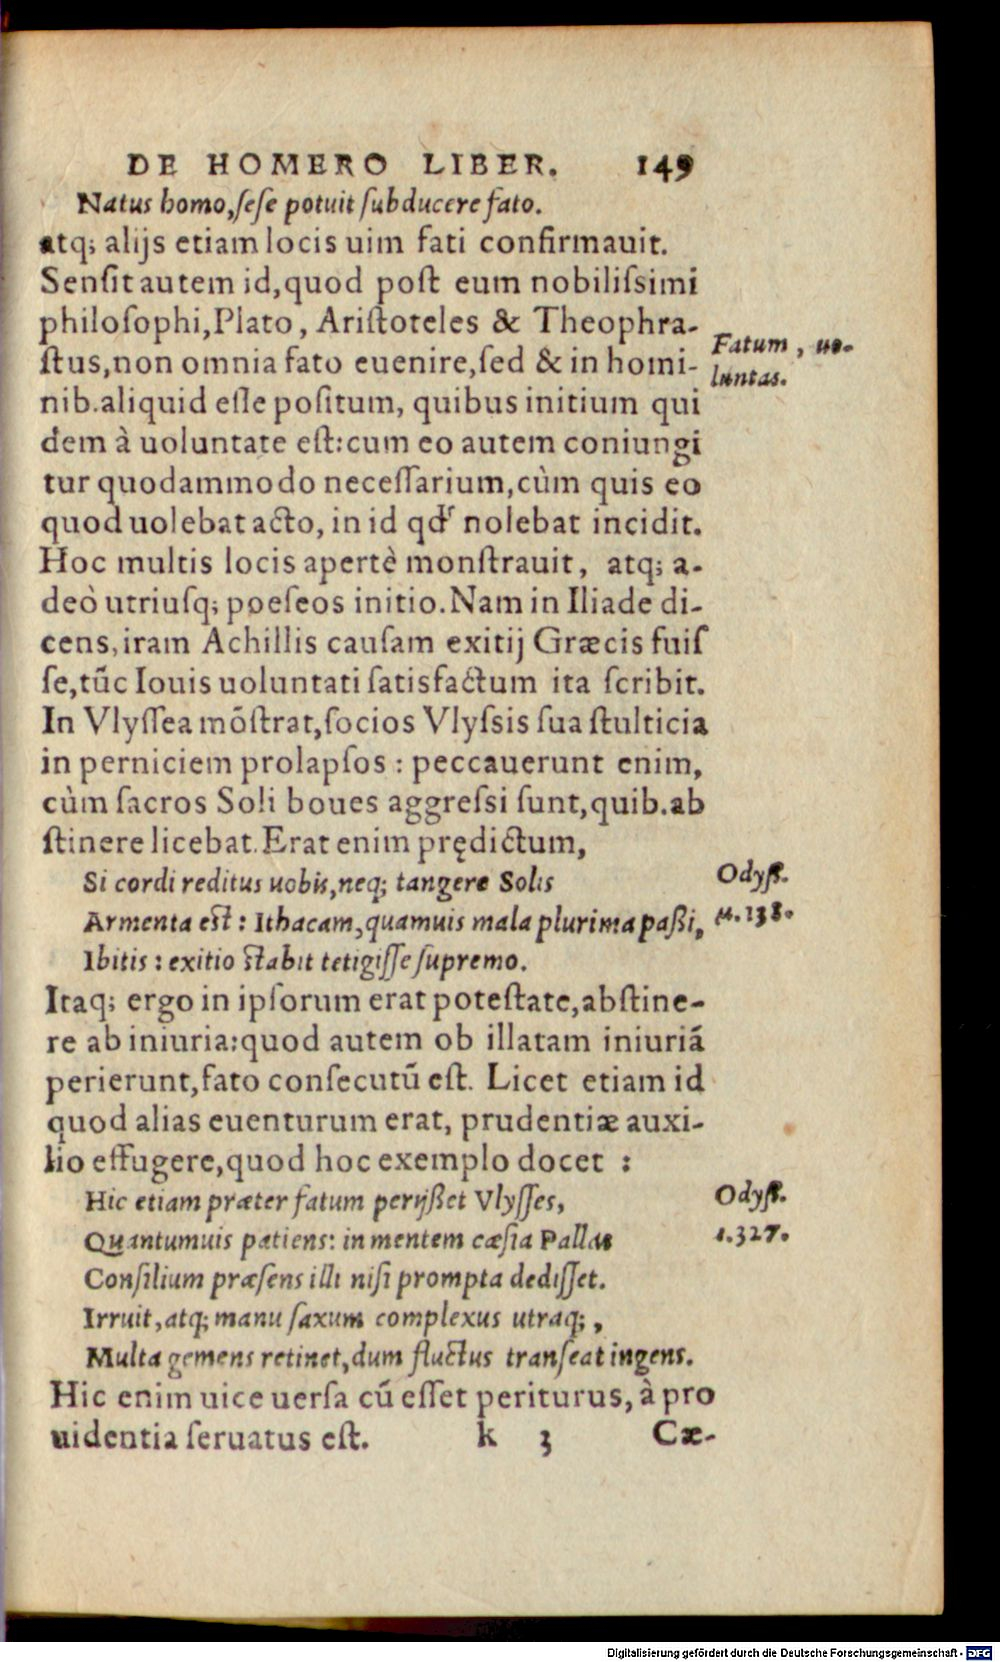 DE HOMERO LIBER. 149
Natus homo, ſeſe potuit ſubducere fato.
atq; alijs etiam locis uim fati confirmauit.
Senſit autem id, quod poſt eum nobiliſsimi
philoſophi, Plato, Ariſtoteles & Theophra-
ſtus, non omnia fato euenire, ſed & in homi-
Fatum, uo-
luntas.
nib. aliquid eſſe poſitum, quibus initium qui
dem à uoluntate eſt: cum eo autem coniungi
tur quodammodo neceſſarium, cùm quis eo
quod uolebat acto, in id qd' nolebat incidit.
Hoc multis locis apertè monſtrauit, atq; a-
deò utriuſq; poeſeos initio. Nam in Iliade di-
cens, iram Achillis cauſam exitij Græcis fuiſ
ſe, tūc Iouis uoluntati ſatisfactum ita ſcribit.
In Vlyſſea mōſtrat, ſocios Vlyſsis ſua ſtulticia
in perniciem prolapſos : peccauerunt enim,
cùm ſacros Soli boues aggreſsi ſunt, quib. ab
ſtinere licebat. Erat enim prędictum,
Si cordi reditus uobis, neq; tangere Solis
Odyſſ.
Armenta eſt : Ithacam, quamuis mala plurima paßi,
μ. 138.
Ibitis : exitio ſtabit tetigiſſe ſupremo.
Itaq; ergo in ipſorum erat poteſtate, abſtine-
re ab iniuria: quod autem ob illatam iniuriā
perierunt, fato conſecutū eſt. Licet etiam id
quod alias euenturum erat, prudentiæ auxi-
lio effugere, quod hoc exemplo docet :
Hic etiam præter fatum perijßet Vlyſſes,
Odyſſ.
Quantumuis patiens: in mentem cæſia Pallas
ε. 327.
Conſilium præſens illi niſi prompta dediſſet.
Irruit, atq; manu ſaxum complexus utraq;,
Multa gemens retinet, dum fluctus tranſeat ingens.
Hic enim uice uerſa cū eſſet periturus, à pro
uidentia ſeruatus eſt. k 3 Cæ-
Digitalisierung gefördert durch die Deutsche Forschungsgemeinschaft - DFG